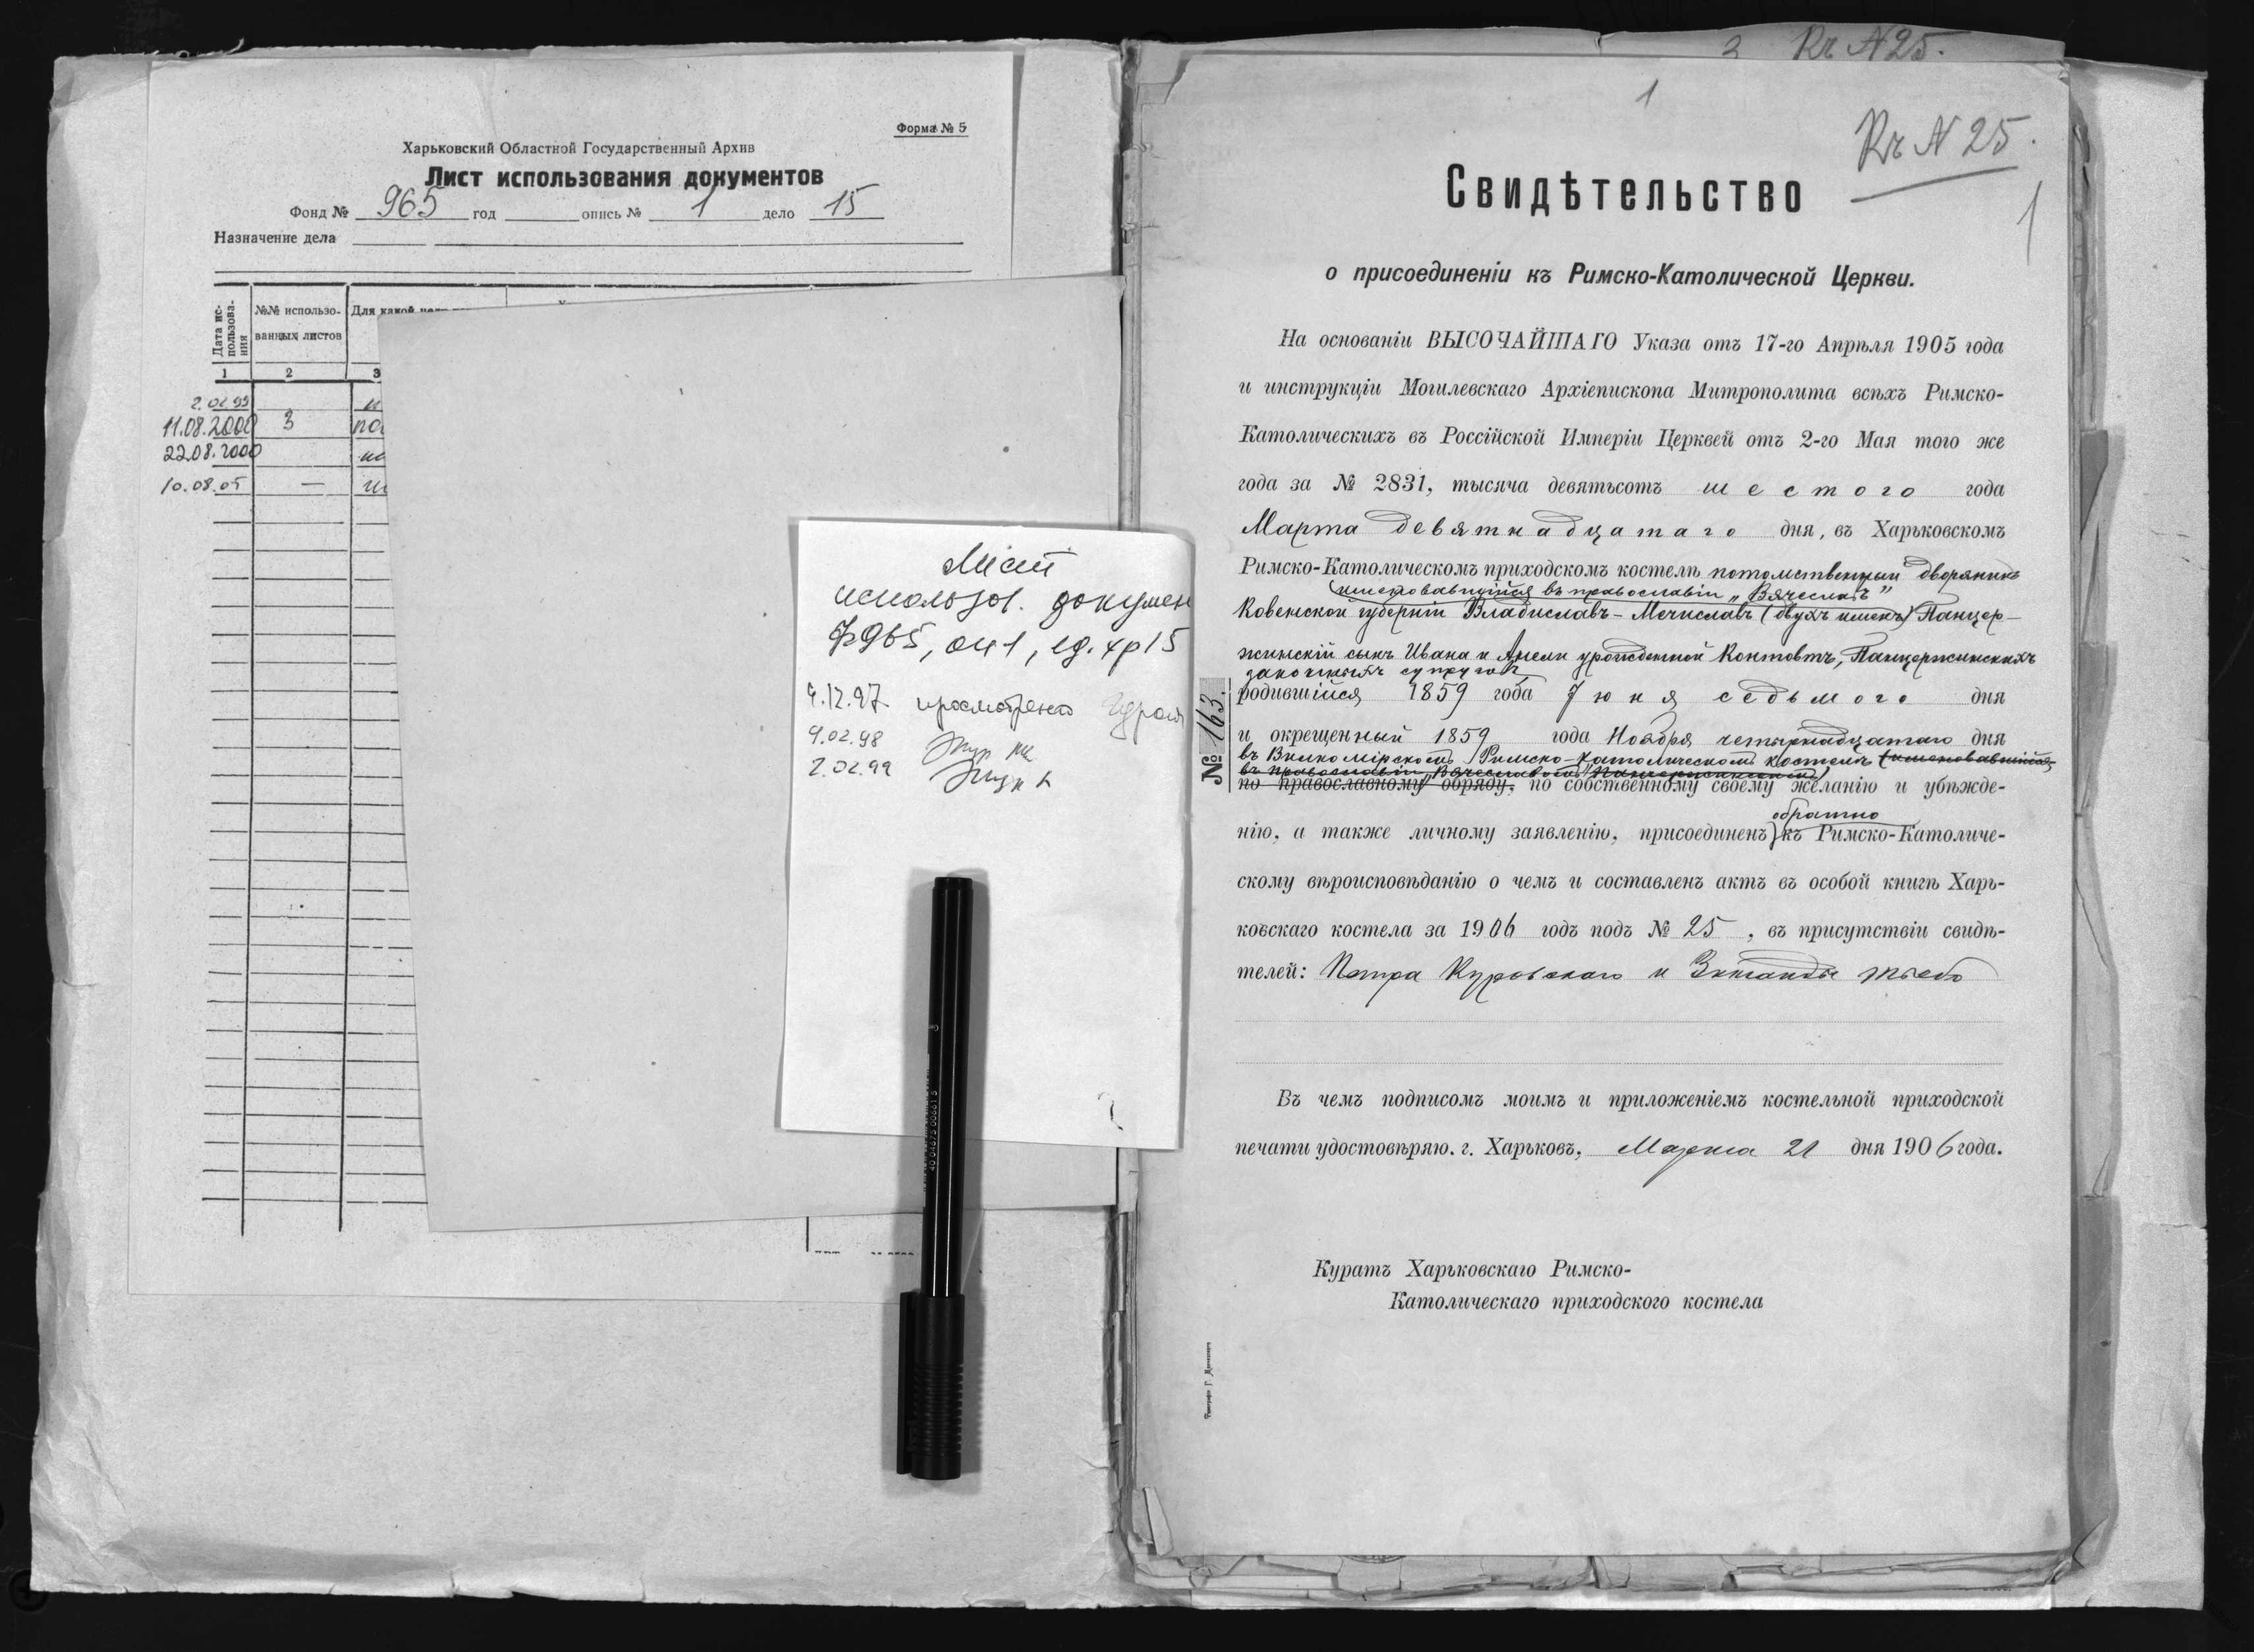 Форма № 5
Харьковский Областной Государственный Архив
Лист использования документов
Фонд № 965 год опись № 1 дело 15
Назначение дела
Дата ис-
пользова-
ния
№№ использо-
ванных листов
Для какой
1 2 3
2.02.99
11.08.2000 3
22.08.2000
10.08.05 —
Лист
использов. докумен
Ф965, оп 1, ед. хр 15
4.12.97 просмотрено
9.02.98
2.02.99
2 Кг N 25.
1
Кг N 25.
1
Свидѣтельство
о присоединеніи къ Римско-Католической Церкви.
На основаніи ВЫСОЧАЙШАГО Указа отъ 17-го Апрѣля 1905 года
и инструкціи Могилевскаго Архіепископа Митрополита всѣхъ Римско-
Католическихъ въ Россійской Имперіи Церквей отъ 2-го Мая того же
года за № 2831, тысяча девятьсотъ шестого года
Марта девятнадцатаго дня, въ Харьковскомъ
Римско-Католическомъ приходскомъ костелѣ потомственный дворянинъ
(именовавшійся въ православіи „Вячеславъ"
Ковенской губерніи Владиславъ-Мечиславъ (двухъ именъ) Панцер-
жинскій сынъ Ивана и Анели урожденной Контовтъ, Панцержинскихъ
законныхъ супруговъ
родившійся 1859 года Іюня седьмого дня
и окрещенный 1859 года Ноября четырнадцатаго дня
въ Вилкомірскомъ Римско-Католическомъ костелѣ (именовавшійся
въ православіи „Вячеславомъ" Панцержинскимъ)
по православному обряду, по собственному своему желанію и убѣжде-
обратно
нію, а также личному заявленію, присоединенъ къ Римско-Католиче-
скому вѣроисповѣданію о чемъ и составленъ актъ въ особой книгѣ Харь-
ковскаго костела за 1906 годъ подъ № 25, въ присутствіи свидѣ-
телей: Петра Куровскаго и
№ 163.
Въ чемъ подписомъ моимъ и приложеніемъ костельной приходской
печати удостовѣряю. г. Харьковъ, Марта 21 дня 1906 года.
Куратъ Харьковскаго Римско-
Католическаго приходского костела